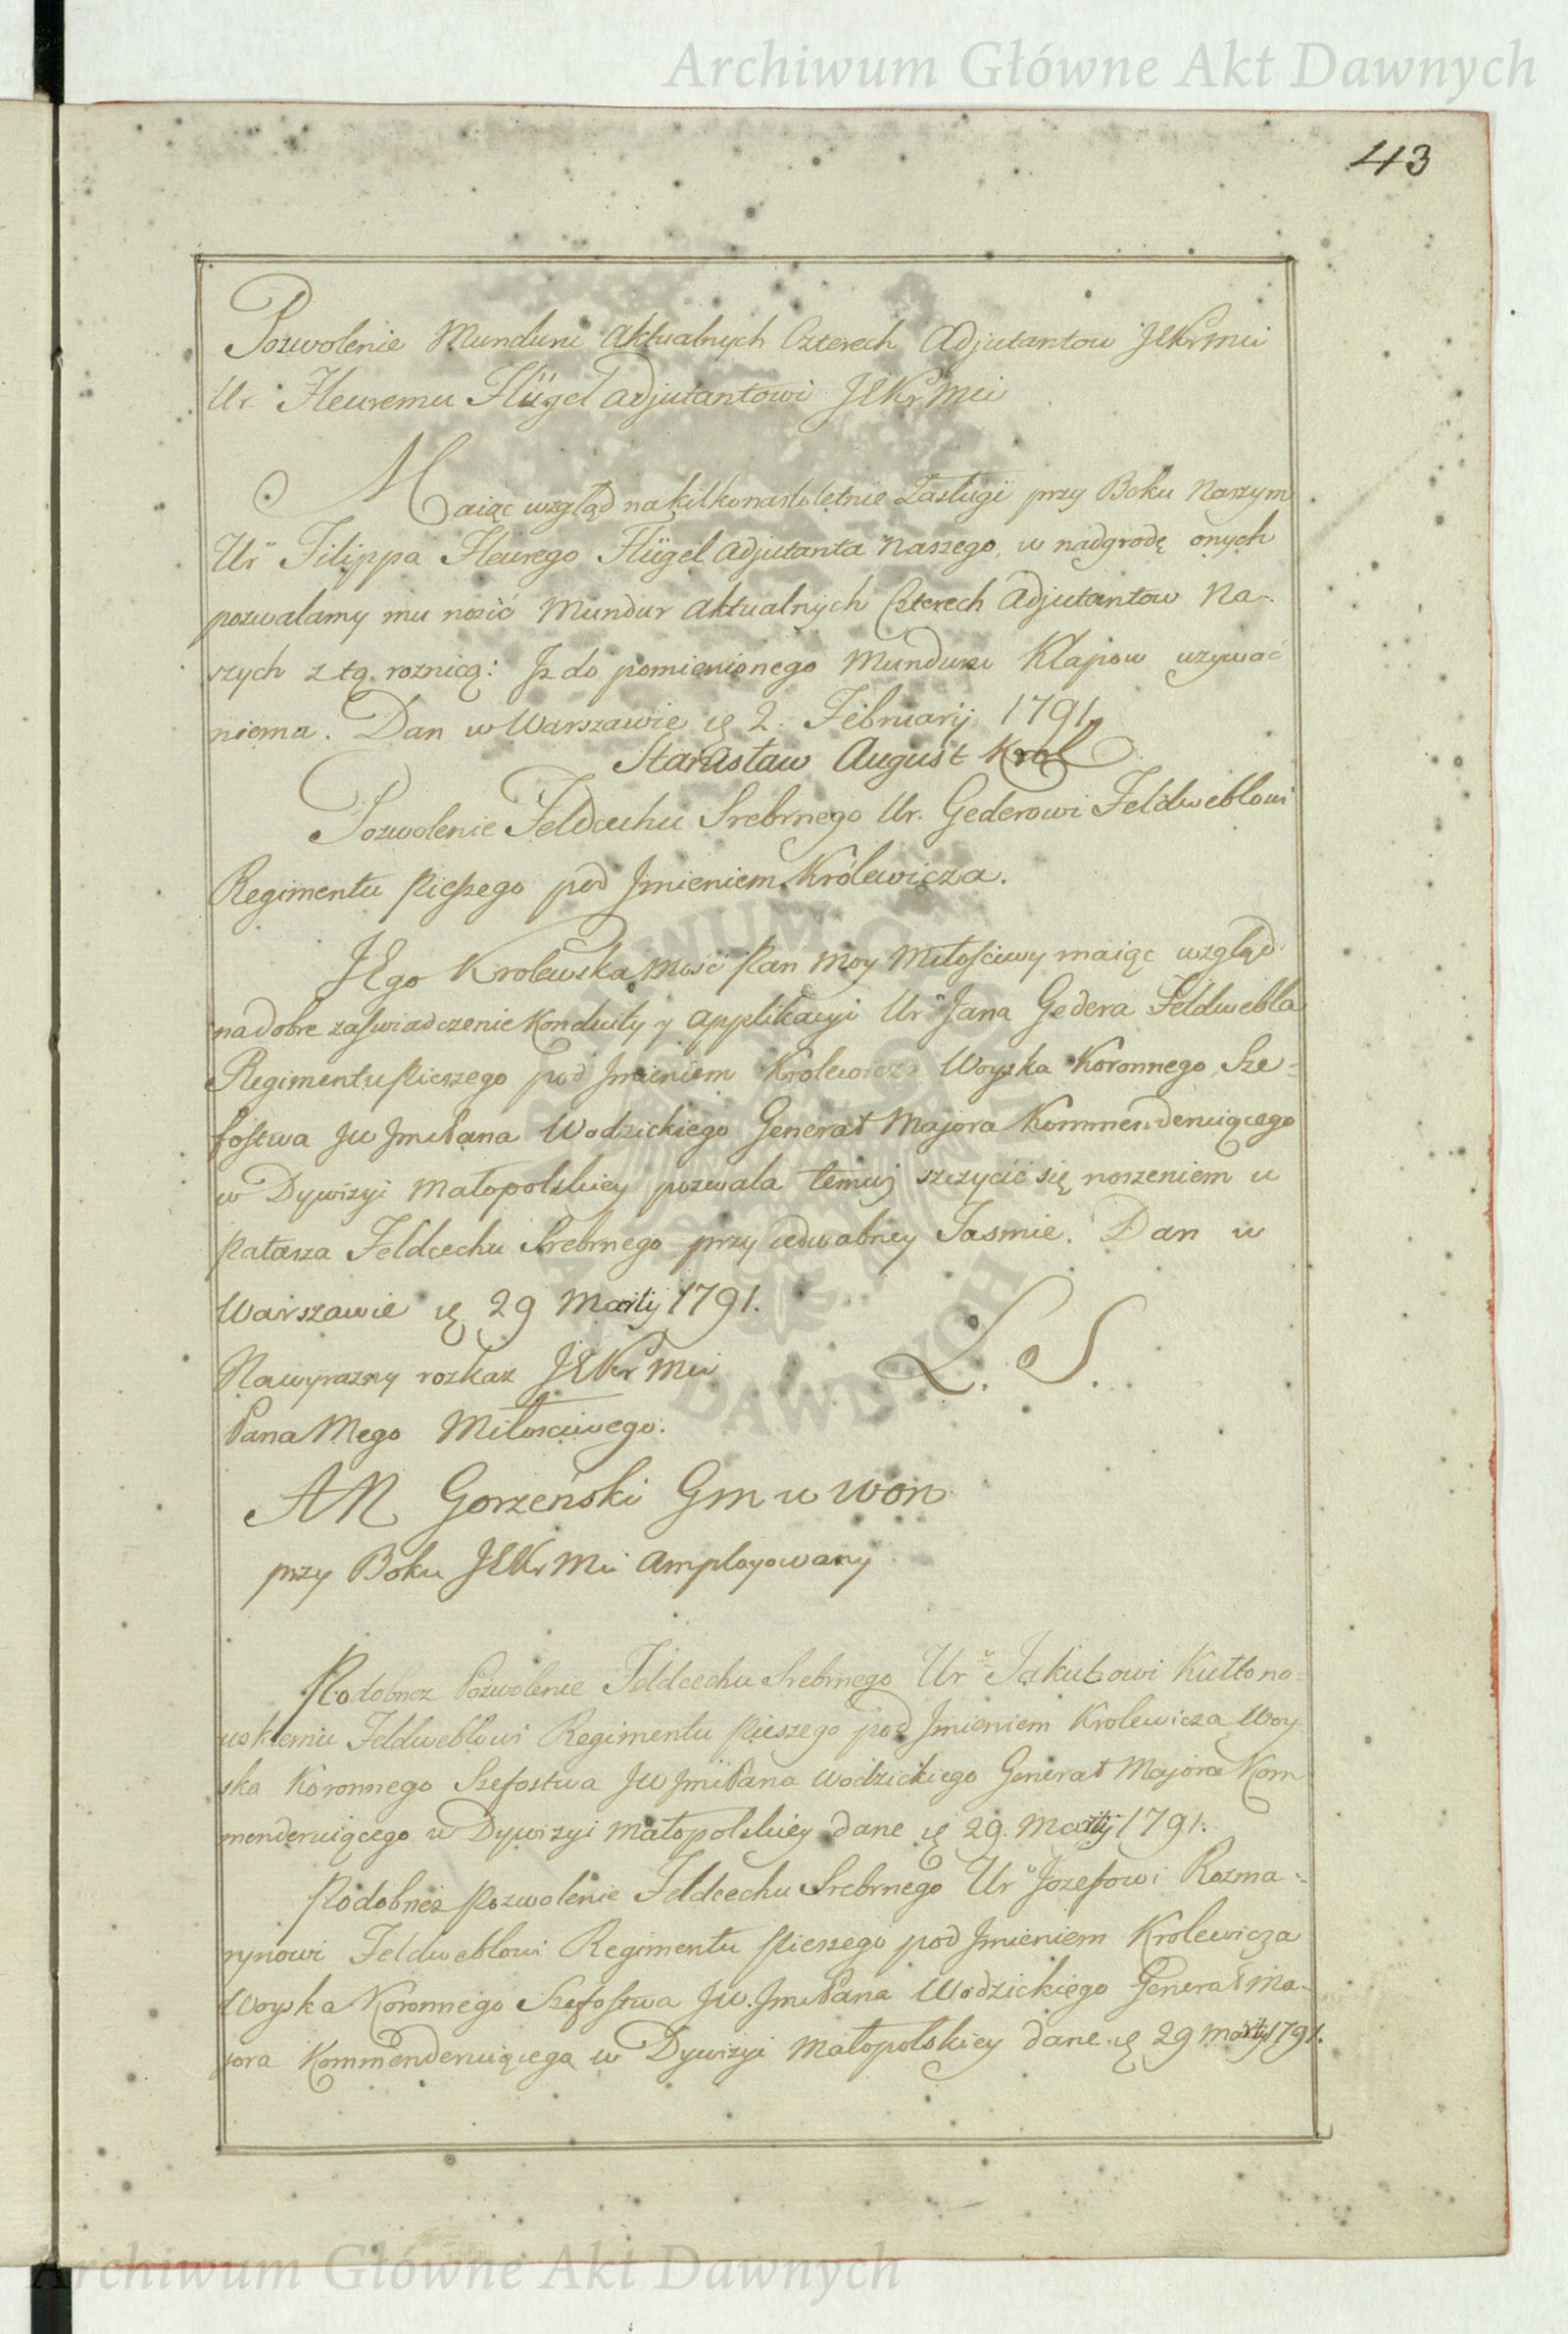 Archiwum Główne Akt Dawnych
43
Pozwolenie Munduru Aktualnych Czterech Adjutantow JKrMci
Ur Fleuremu Flügel Adjutantowi JKrMci
Maiąc wzgląd na kilkonastoletnie Zasługi przy Boku Naszym
Ur Filippa Fleurego Flügel Adjutanta Naszego, w nadgrodę onych
pozwalamy mu nosić Mundur Aktualnych Czterech Adjutantow Na-
szych z tą roznicą: Jż do pomienionego Munduru Klapow uzywać
niema. Dan w Warszawie 2. Februarij 1791.
Stanisław August Krol
Pozwolenie Feldcechu Srebrnego Ur. Gederowi Feldweblowi
Regimentu Pieszego pod Jmieniem Królewicza.
JEgo Krolewska Mość Pan Moy Miłościwy maiąc wzgląd
na dobre zaświadczenie Konduity y applikacyi Ur Jana Gedera Feldwebla
Regimentu Pieszego pod Jmieniem Krolewicza Woyska Koronnego, Sze-
fostwa JW JmPana Wodzickiego Generał Majora Kommenderuiącego
w Dywizyi Małopolskiey pozwala temuż szczycić się noszeniem u
Pałasza Feldcechu Srebrnego przy iedwabney Tasmie. Dan w
Warszawie 29 Martij 1791.
Na wyrazny rozkaz JKrMci
L. S.
Pana Mego Miłosciwego.
AM Gorzeński Gm w Won
przy Boku JKrMci Amployowany
Podobnez Pozwolenie Feldcechu Srebrnego Ur Jakubowi Kutłono-
wskiemu Feldweblowi Regimentu Pieszego pod Jmieniem Krolewicza Woy
ska Koronnego Szefostwa JW JmPana Wodzickiego Generał Majora Kom
menderuiącego w Dywizyi Małopolskiey dane 29. Martij 1791.
Podobnéz Pozwolenie Feldcechu Srebrnego Ur Jozefowi Rozma-
rynowi Feldweblowi Regimentu Pieszego pod Jmieniem Krolewicza
Woyska Koronnego Szefostwa JW. JmPana Wodzickiego Generał Ma-
jora Kommenderuiącego w Dywizyi Małopolskiey dane 29 Martij 1791.
Archiwum Główne Akt Dawnych